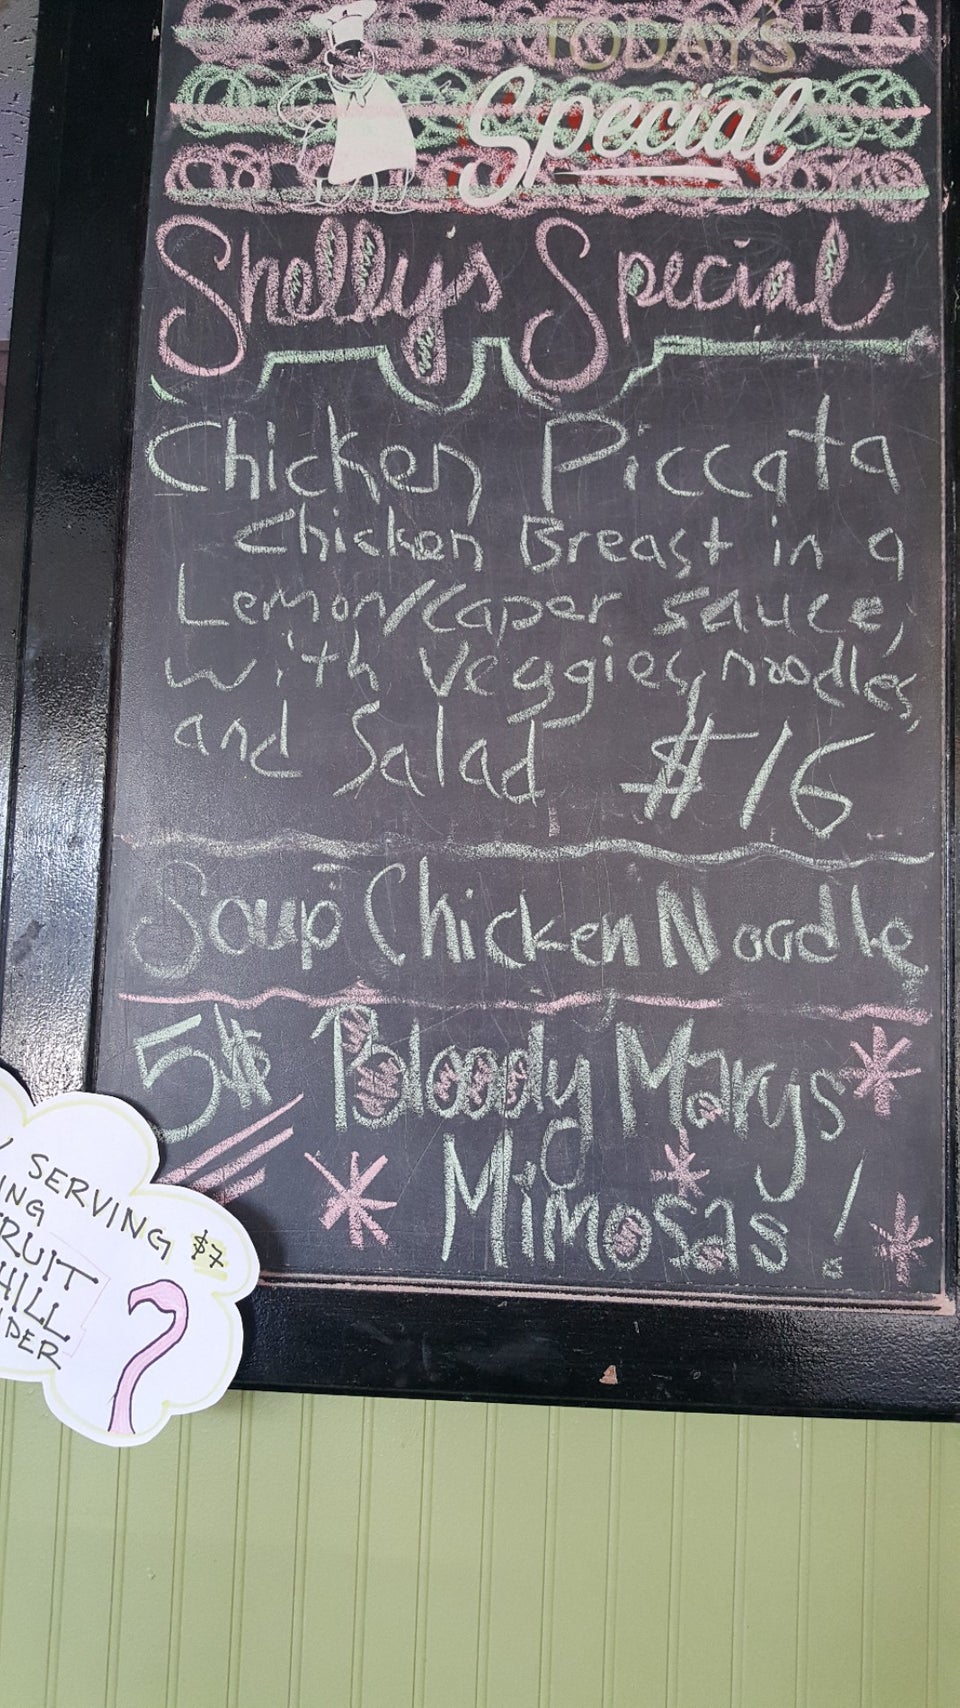 TODAY'S
Special
Shelly's Special
Chicken Piccata
Chicken Breast in a
Lemon/Caper sauce,
with Veggies, noodles,
and Salad $16
Soup Chicken Noodle
5$ Bloody Marys
Mimosas!
SERVING
ING $7
RUIT
HILL
DER